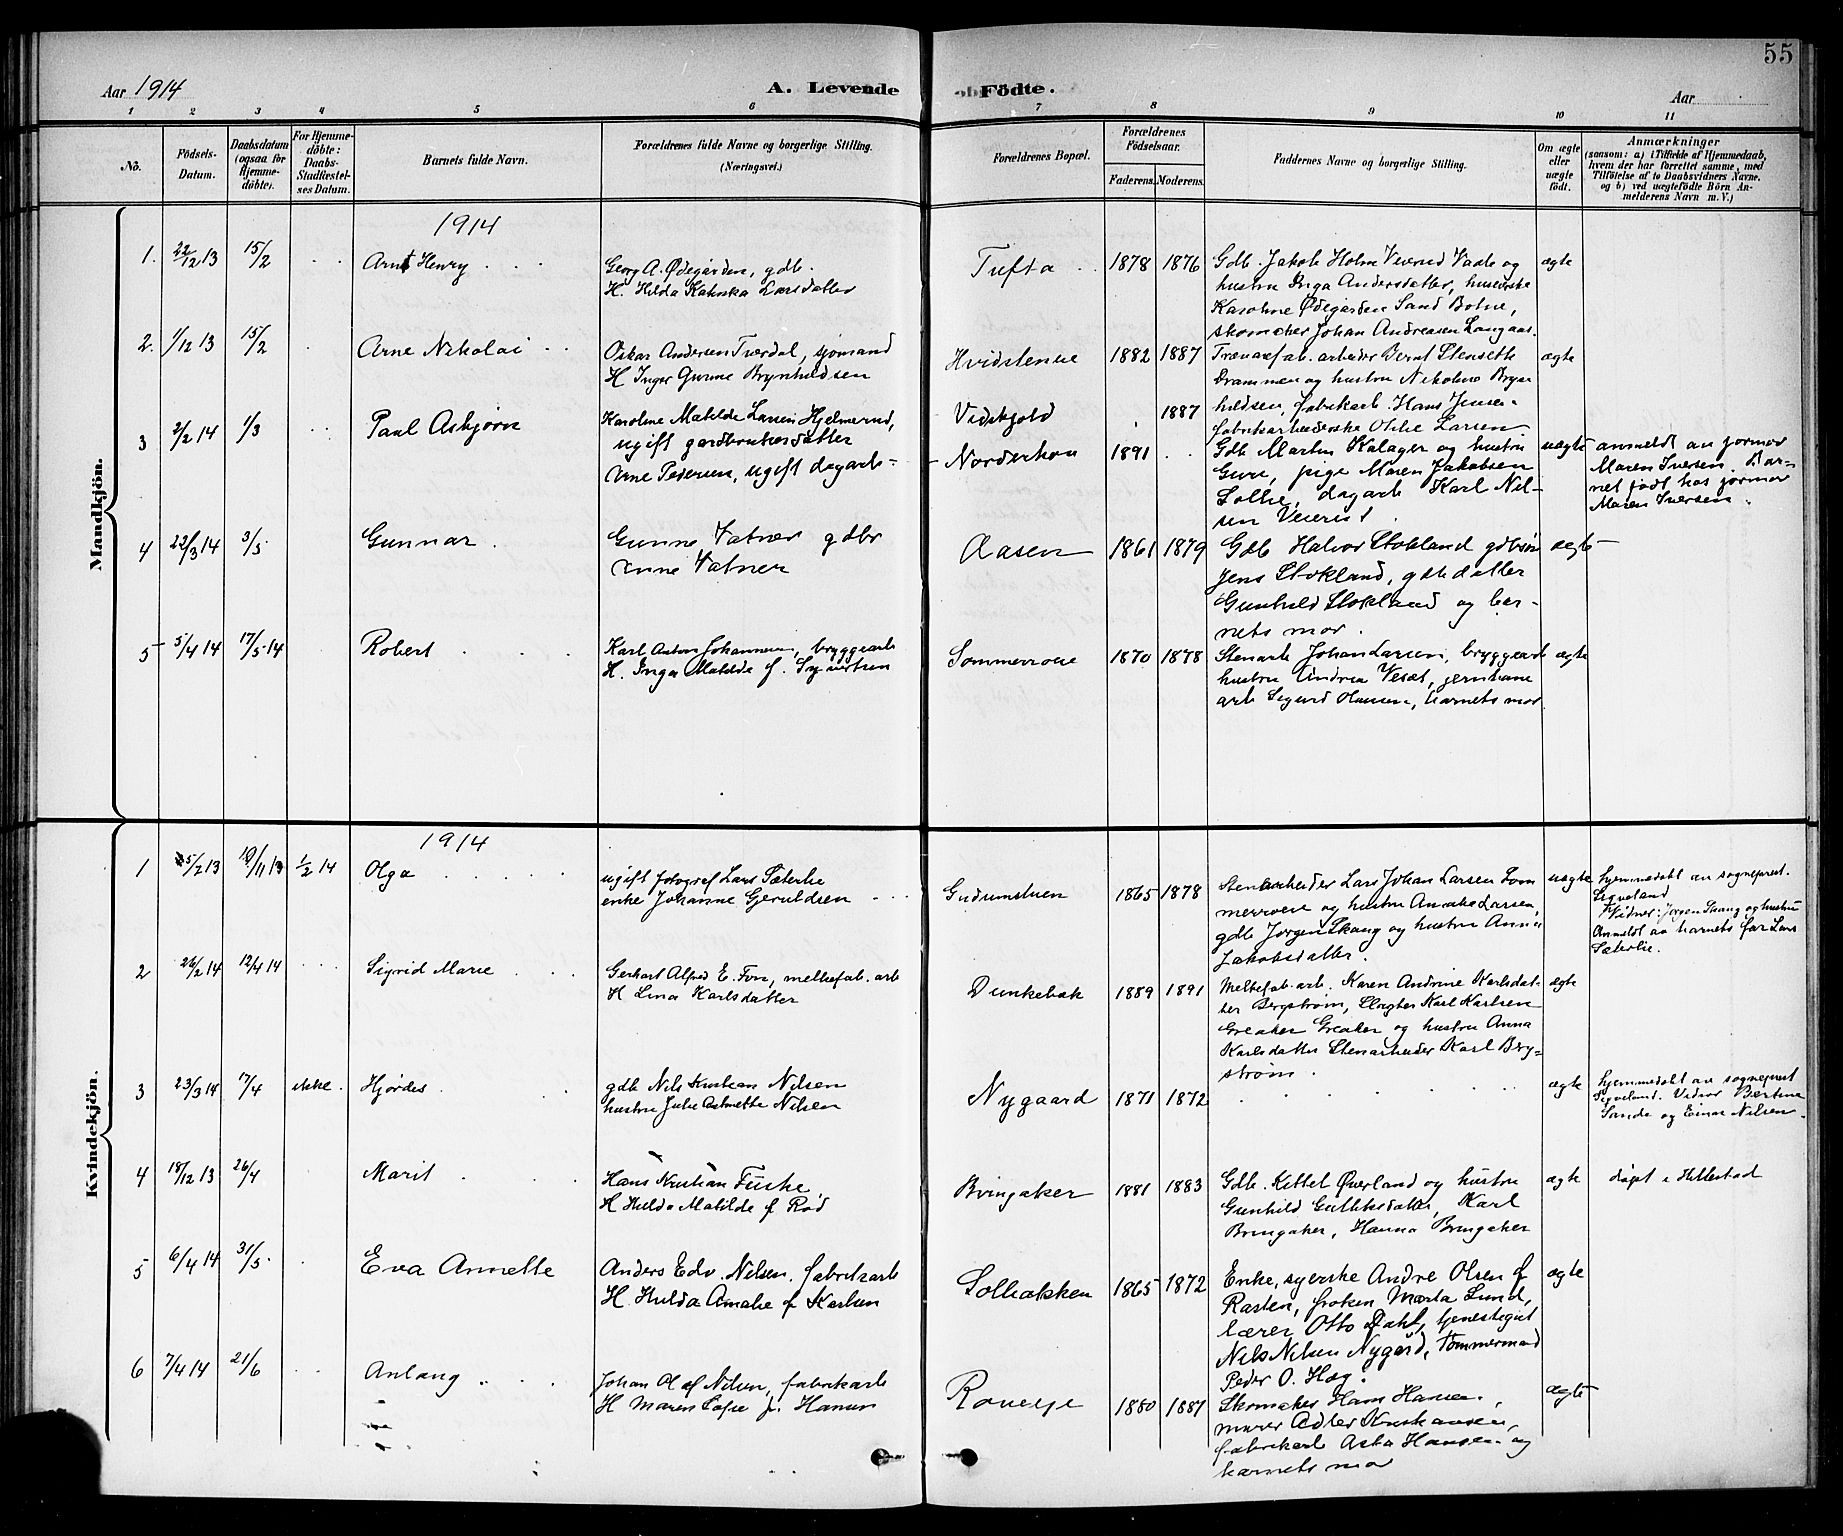 55
Aar 1914
A. Levende Födte.
Aar
1 2 3 4 5 6 7 8 9 10 11
No.
Födsels-Datum.
Daabsdatum (ogsaa for Hjemmedöbte).
For Hjemmedöbte: Daabs-Stadfæstelses Datum.
Barnets fulde Navn.
Forældrenes fulde Navne og borgerlige Stilling. (Næringsvei.)
Forældrenes Bopæl.
Forældrenes Födselsaar.
Faderens. Moderens.
Faddernes Navne og borgerlige Stilling.
Om ægte eller uægte födt.
Anmærkninger
(saasom: a) i Tilfælde af Hjemmedaab, hvem der har forrettet samme, med Tilföielse af to Daabsvidners Navne, og b) ved uægtefödte Börn Anmelderens Navn m. V.)
Mandkjön.
1914
1. 22/12 13 15/2 Arnt Henry
Georg A. Ødegården, gdb.
H. Hilda Larsdatter
Tufta 1878 1876
Gdb. Jakob Holm Veierud Vaale og
hustru Inga Andersdatter, huseierske
Karoline Ødegården Sand Botne,
skomaker Johan Andreasen Langaas
ægte
2. 1/12 13 15/2 Arne Nikolai
Oskar Andersen Tverdal, sjømand
H Inger Gurine Brynhildsen
Hvidstenne 1882 1887
Trævarefab. arbeider Bernt Stensette
Drammen og hustru Nikoline Bryn
hildsen, fabrikarb. Hans Jensen
fabrikarbeiderske Otilie Larsen
ægte
3 2/2 14 1/3 Paul Asbjørn
Karoline Matilde Larsen Hjelmerud,
ugift gardbrukersdatter
Arne Pedersen, ugift dagarb-
Vidskjold 1887
Norderhov 1891
Gdb Martin Kalager og hustru
Gure, pige Maren Jakobsen
Sollie, dagarb Karl Nil-
sen
uægte
anmeldt av jormor
Maren Iversen. Bar-
net født hos jormor
Maren Iversen.
4 22/3 14 3/5 Gunnar
Gunne Vatner gdbr
Anne Vatner
Aasen 1861 1879
Gdb Halvor Stokland gdbsøn
Jens Stokland, gdb datter
Gunhild Stokland og bar-
nets mor.
ægte
5 5/4 14 17/5 14 Robert
Karl Anton Johannesen, bryggearb
H. Inga Matilde f. Syvertsen
Sommerroe 1870 1878
Stenarb Johan Larsen, bryggearb
hustru Andrea Vesæt, jernbane
arb Sigurd Hansen, barnets mor
ægte
Kvindekjön.
1914
1 5/2 13 10/11 13 1/2 14 Olga
ugift fotograf Lars Sæterlie
enke Johanne Gjerulldsen
Gudumstuen 1865 1878
Stenarbeider Lars Johan Larsen Som
merroe og hustru Amalie Larsen,
gdb Jørgen Skang og hustru Anna
Jakobsdatter.
uægte
hjemmedøbt av sogneprest
Sigveland
Vidner: Jørgen Skang og hustru
Anmeldt av barnets far Lars
Sæterlie.
2 26/2 14 12/4 14 Sigrid Marie
Gerhart Alfred E. Fon, melkefab. arb
H Lina Karlsdatter
Dunkebæk 1889 1891
Melkefab. arb. Karen Andrine Karlsdat-
ter Bergstrøm, Slagter Karl Karlsen
Greaker Greaker og hustru Anna
Karlsdatter Stenarbeider Karl Bry-
strøm.
ægte
3 23/3 14 17/4 ikke. Hjørdes
gdb Nils Kristian Nilsen
hustru Julie Nilsen
Nygaard 1871 1872
ægte
hjemmedøbt av sogneprest
Sigveland. Vidner Bertine
Sande og Einar Nilsen
4 18/12 13 26/4 Marit
Hans Kristian Fuske
H Hulda Matilde f Rød
Bringaker 1881 1883
Gdb. Kittel Øverland og hustru
Gunhild Gulliksdatter, Karl
Bringaker, Hanna Bringaker
ægte
døpt i Hillestad
5 6/4 14 31/5. Eva Annette
Anders Edv. Nilsen. fabrikarb
H Hulda Amalie f Karlsen
Solbakken 1865 1872
Enke, syerske Andre Olsen f
Rasten, frøken Marta Lund,
lærer Otto Dahl, tjenestegut
Nils Nilsen Nygård, Tømmermand
Peder O. Hæg.
ægte
6 7/4 14 21/6 Anlaug
Johan Olaf Nilsen, fabrikarb
H Maren Sofie f. Hansen
1880 1887
Skomaker Hans Hansen,
murer Adler Kristiansen,
fabrikarb Asta Hansen og
barnets mor
ægte